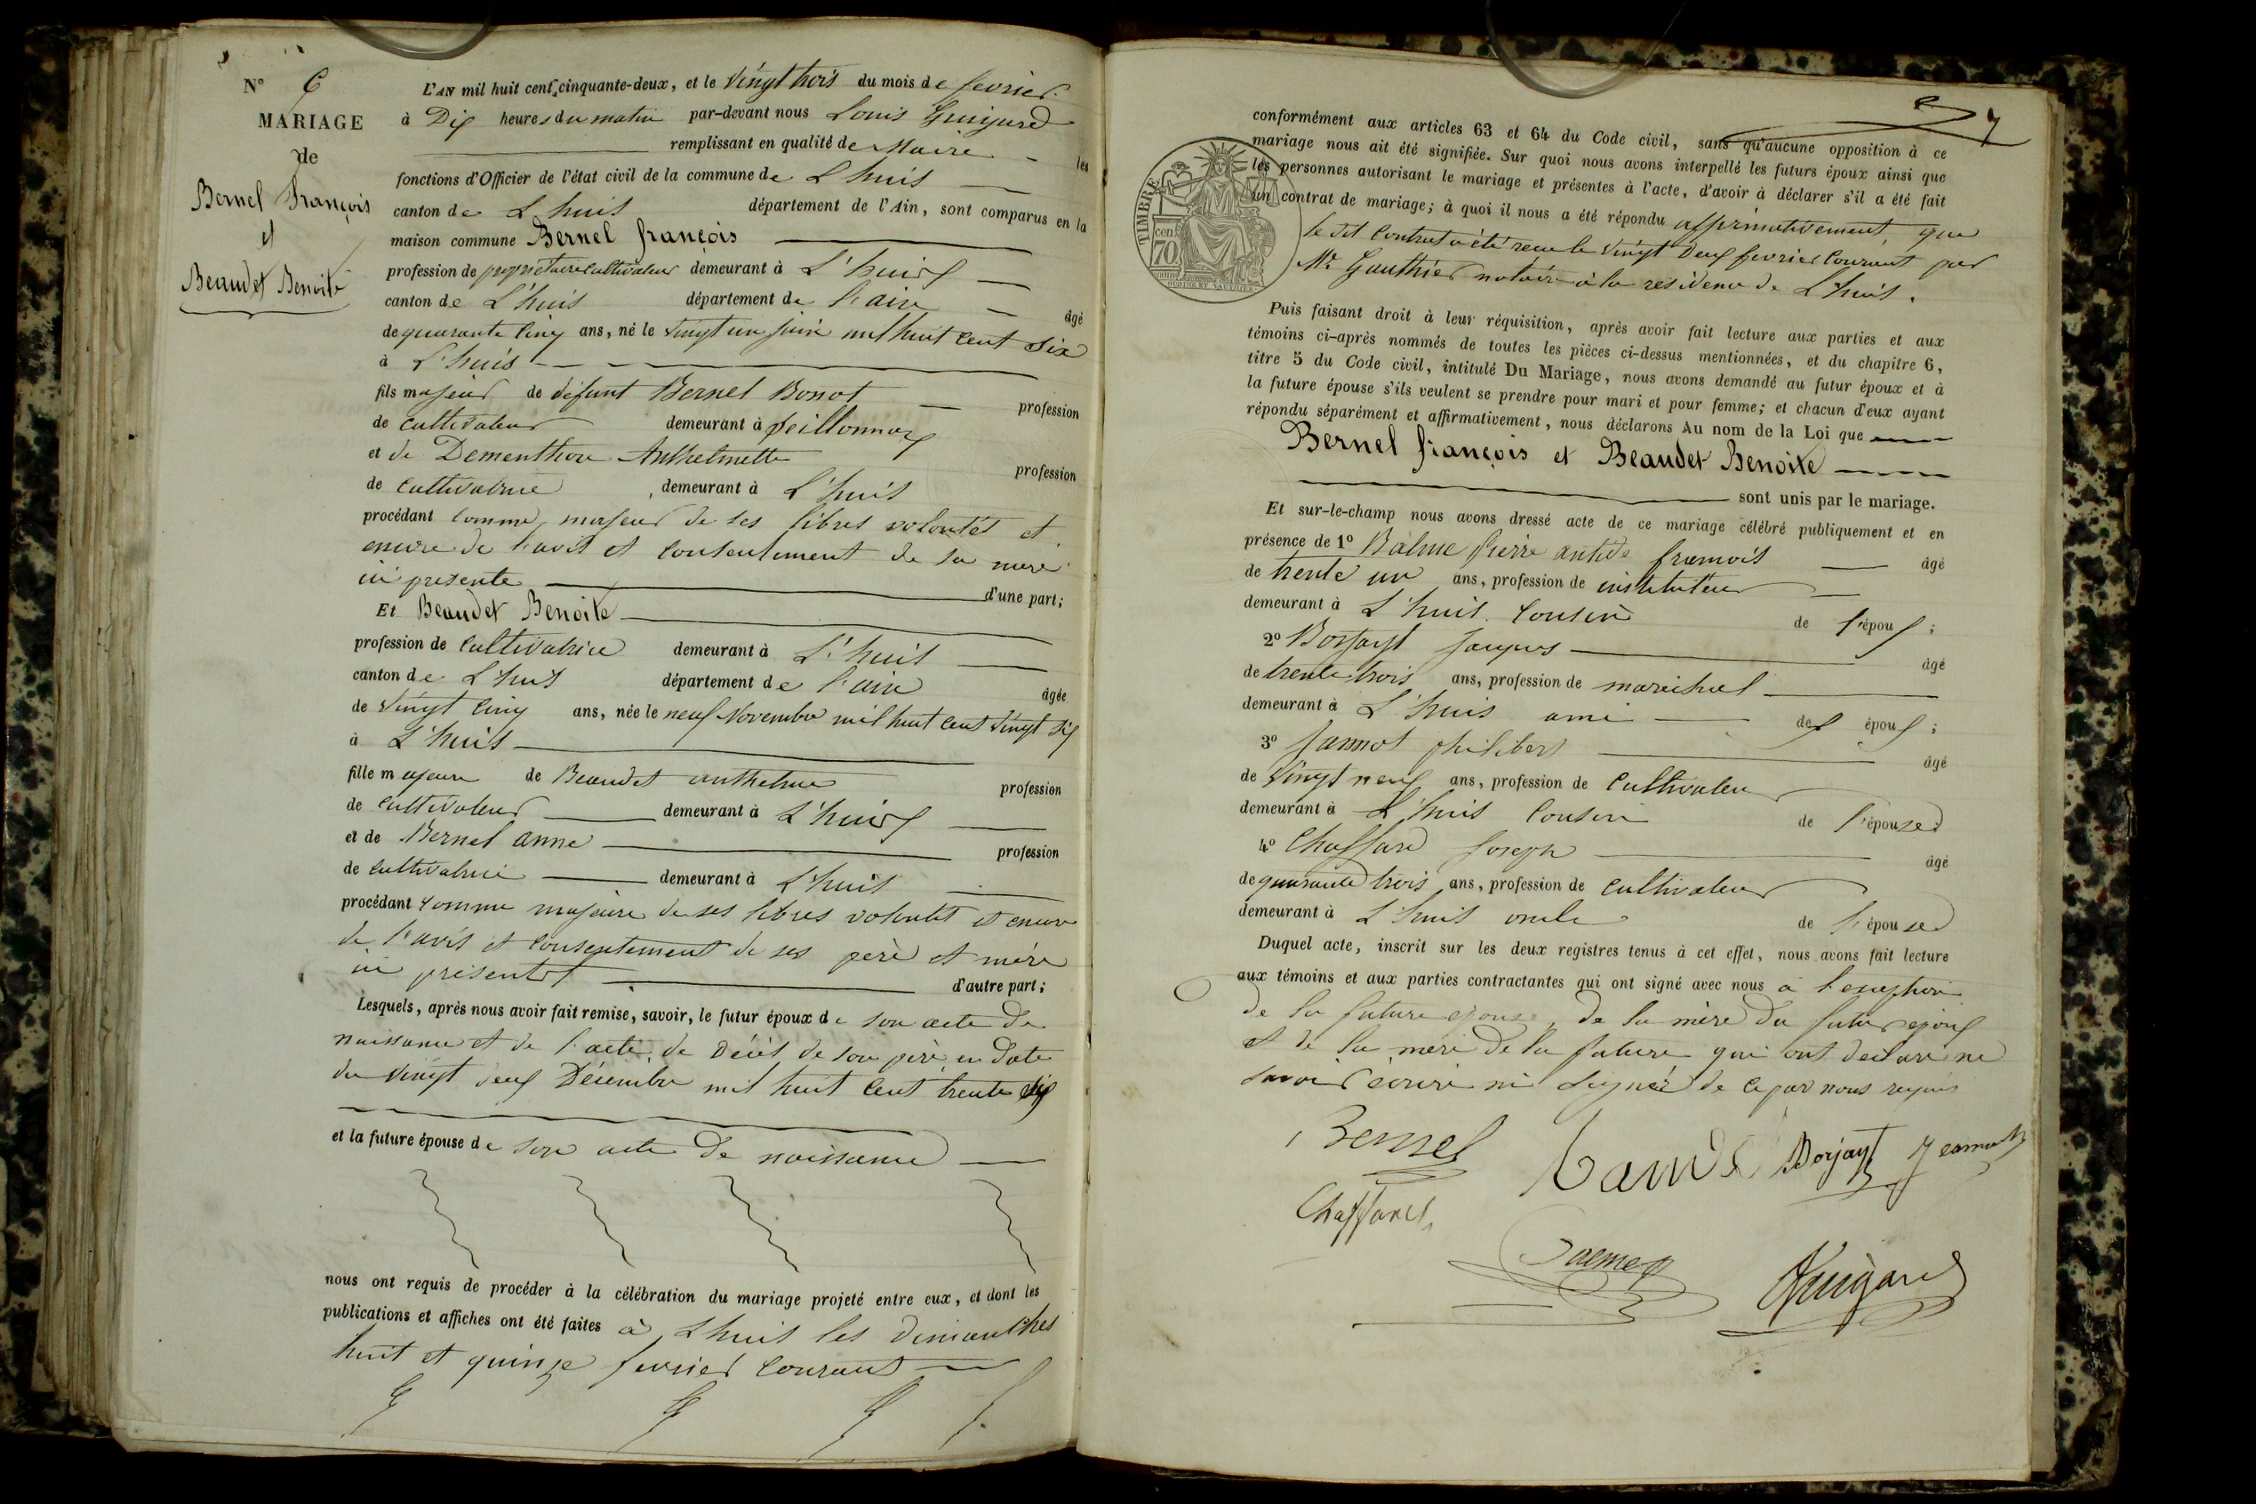 N° 6
MARIAGE
de
Bernel François
et
Beaudet Benoite
L'AN mil huit cent cinquante-deux, et le vingt trois du mois de fevrier
à Dix heures du matin par-devant nous Louis Guigard
remplissant en qualité de Maire les
fonctions d'Officier de l'état civil de la commune de Lhuis
canton de Lhuis département de l'Ain, sont comparus en la
maison commune Bernel françois
profession de propriétaire cultivateur demeurant à L'huis
canton de L'huis département de l'ain âgé
de quarante Cinq ans, né le vingt un juin mil huit cent six
à L'huis
fils majeur de défunt Bernel Bonot profession
de cultivateur demeurant à peillonnax
et de Dementhon Anthelmette profession
de cultivatrice demeurant à L'huis
procédant comme majeur de ses libres volontés et
encore de l'avis et consentement de sa mère
ici presente d'une part;
Et Beaudet Benoite
profession de Cultivatrice demeurant à L'huis
canton de L'huis département de l'ain âgée
de vingt cinq ans, née le neuf Novembre mil huit cent vingt six
à L'huis
fille majeure de Beaudet anthelme profession
de cultivateur demeurant à L'huis
et de Bernel anne profession
de cultivatrice demeurant à L'huis
procédant comme majeure de ses libres volontés et encore
de l'avis et consentement de ses père et mère
ici présents d'autre part;
Lesquels, après nous avoir fait remise, savoir, le futur époux de son acte de
naissance et de l'acte de Décès de son père en date
du vingt deux Décembre mil huit cent trente six
et la future épouse de son acte de naissance
nous ont requis de procéder à la célébration du mariage projeté entre eux, et dont les
publications et affiches ont été faites à Lhuis les dimanches
huit et quinze fevrier courant
7
conformément aux articles 63 et 64 du Code civil, sans qu'aucune opposition à ce
mariage nous ait été signifiée. Sur quoi nous avons interpellé les futurs époux ainsi que
les personnes autorisant le mariage et présentes à l'acte, d'avoir à déclarer s'il a été fait
un contrat de mariage; à quoi il nous a été répondu affirmativement, que
le dit Contrat a été reçu le vingt Deux fevrier Courant par
Me Gauthier notaire à la residence de L'huis.
TIMBRE
70
Puis faisant droit à leur réquisition, après avoir fait lecture aux parties et aux
témoins ci-après nommés de toutes les pièces ci-dessus mentionnées, et du chapitre 6,
titre 5 du Code civil, intitulé Du Mariage, nous avons demandé au futur époux et à
la future épouse s'ils veulent se prendre pour mari et pour femme; et chacun d'eux ayant
répondu séparément et affirmativement, nous déclarons Au nom de la Loi que
Bernel françois et Beaudet Benoite
sont unis par le mariage.
Et sur-le-champ nous avons dressé acte de ce mariage célébré publiquement et en
présence de 1° Balme pierre antide francois âgé
de trente un ans, profession de instituteur
demeurant à L'huis Cousin de l'époux;
2° Borjayt jacques âgé
de trente trois ans, profession de maréchal
demeurant à L'huis ami des époux;
3° Jannot philibert âgé
de vingt neuf ans, profession de Cultivateur
demeurant à L'huis Cousin de l'épouse;
4° Chaffard Joseph âgé
de quarante trois ans, profession de cultivateur
demeurant à L'huis oncle de l'épouse
Duquel acte, inscrit sur les deux registres tenus à cet effet, nous avons fait lecture
aux témoins et aux parties contractantes qui ont signé avec nous à l'exception
de la future épouse, de la mère du futur epoux
et de la mère de la future qui ont déclaré ne
savoir ecrire ni signer de ce par nous requis
Bernel Borjayt Jeannot
Chaffard
Guigard